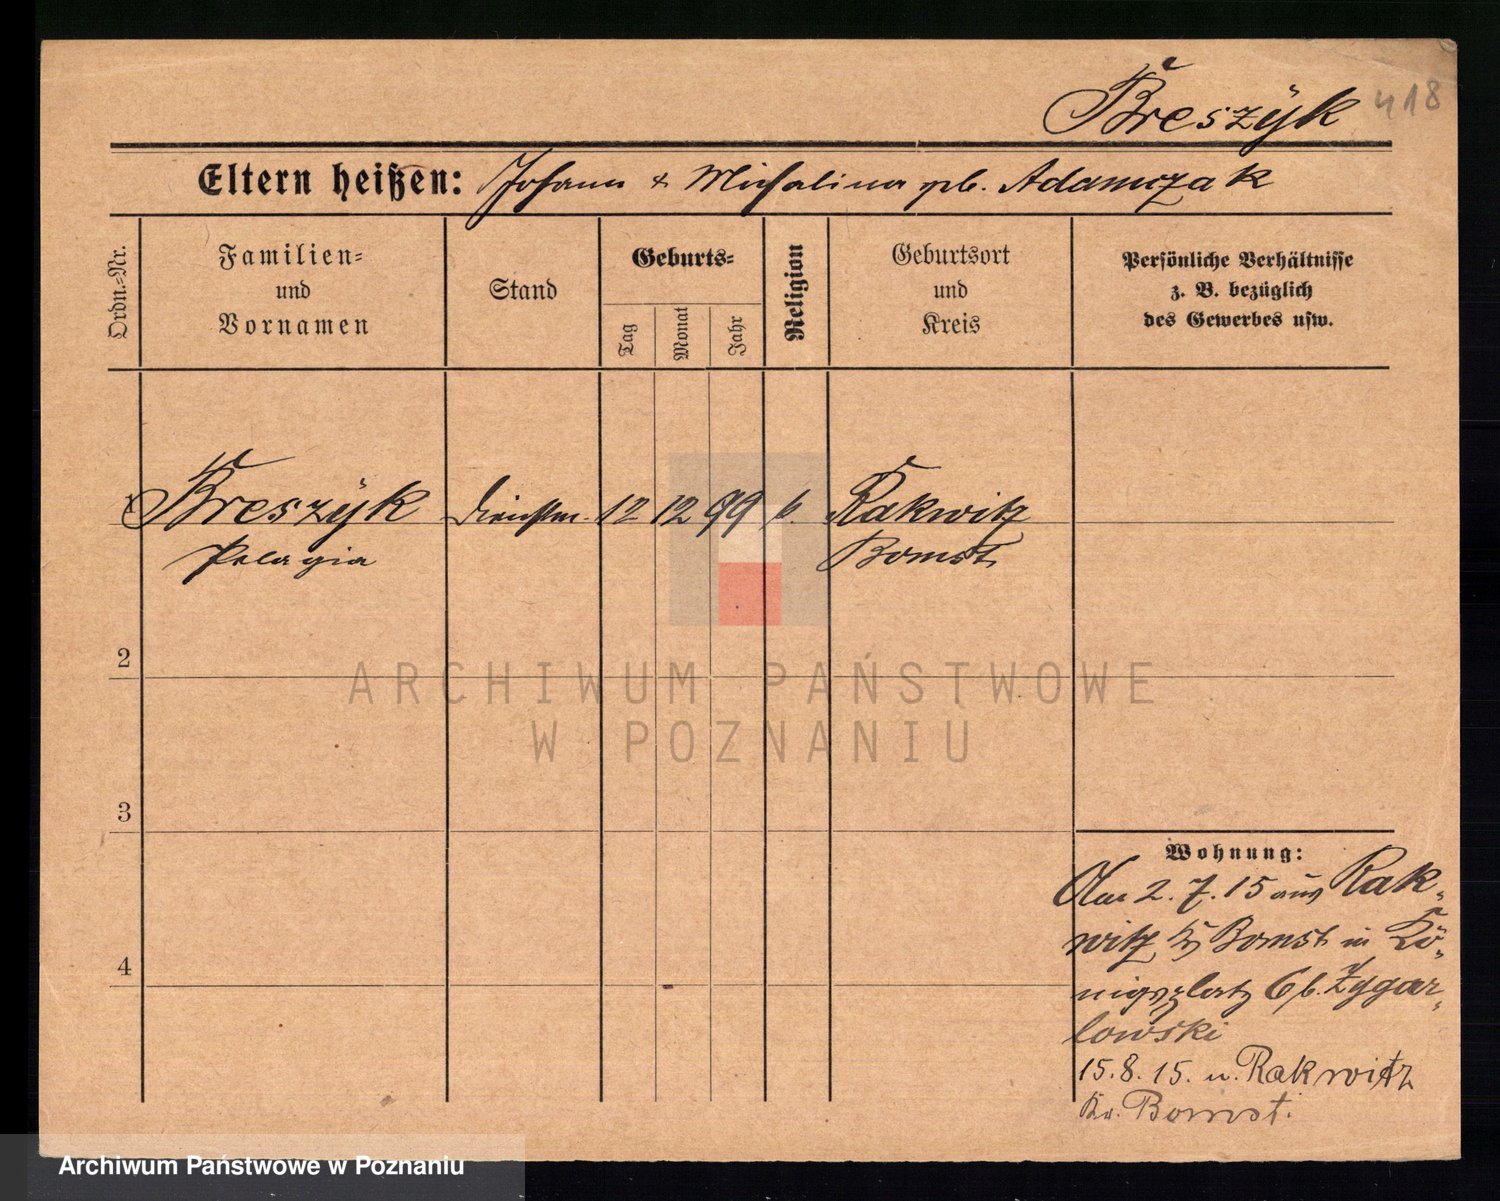 Breszÿk 418
Eltern heißen: Johann & Michalina geb. Adamczak
Ordn.-Nr.
Familien-
und
Vornamen
Stand
Geburts-
Tag
Monat
Jahr
Religion
Geburtsort
und
Kreis
Persönliche Verhältnisse
z. B. bezüglich
des Gewerbes usw.
1 Breszÿk Dienstm. 12 12 99 k. Rakwitz
Pelagia Bomst
2
3
4
Wohnung:
Am 2.7.15 aus Rak-
witz Kr Bomst in Kö-
nigsplatz 6 b. Zygar-
lowski
15.8.15. n. Rakwitz
Kr. Bomst.
ARCHIWUM PAŃSTWOWE
W POZNANIU
Archiwum Państwowe w Poznaniu